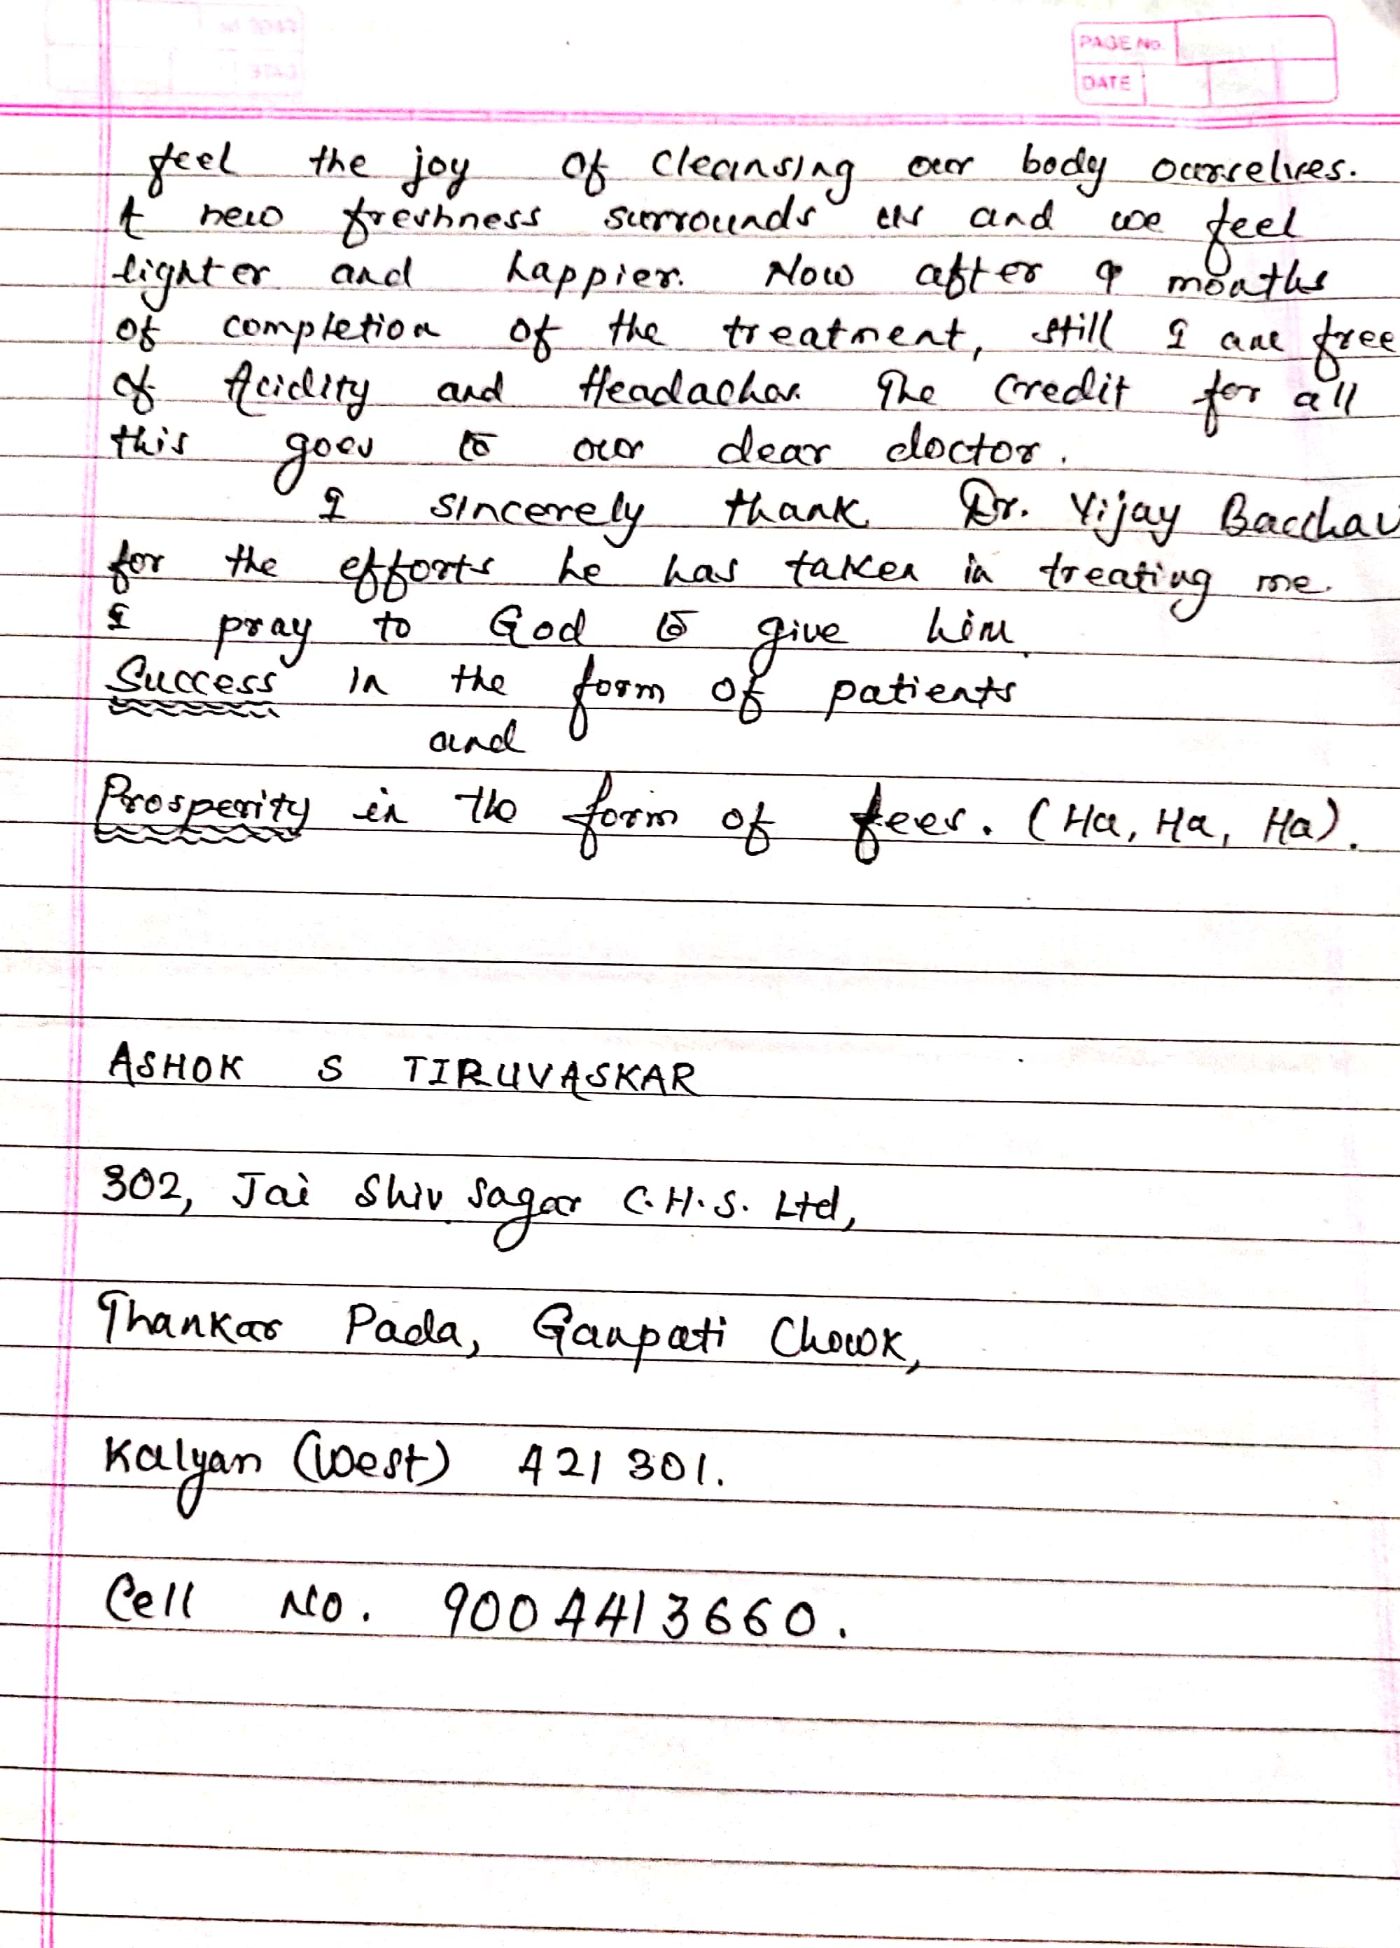 PAGE No.
DATE
feel the joy of cleansing our body ourselves.
A new freshness surrounds us and we feel
lighter and happier. Now after 9 months
of completion of the treatment, still I am free
of Acidity and Headaches. The credit for all
this goes to our dear doctor.
I sincerely thank Dr. Vijay Bacchav
for the efforts he has taken in treating me.
I pray to God to give him
Success in the form of patients
and
Prosperity in the form of fees. (Ha, Ha, Ha).
ASHOK S TIRUVASKAR
302, Jai Shiv Sagar C.H.S. Ltd,
Thankar Pada, Ganpati Chowk,
Kalyan (West) 421 301.
Cell No. 9004413660.